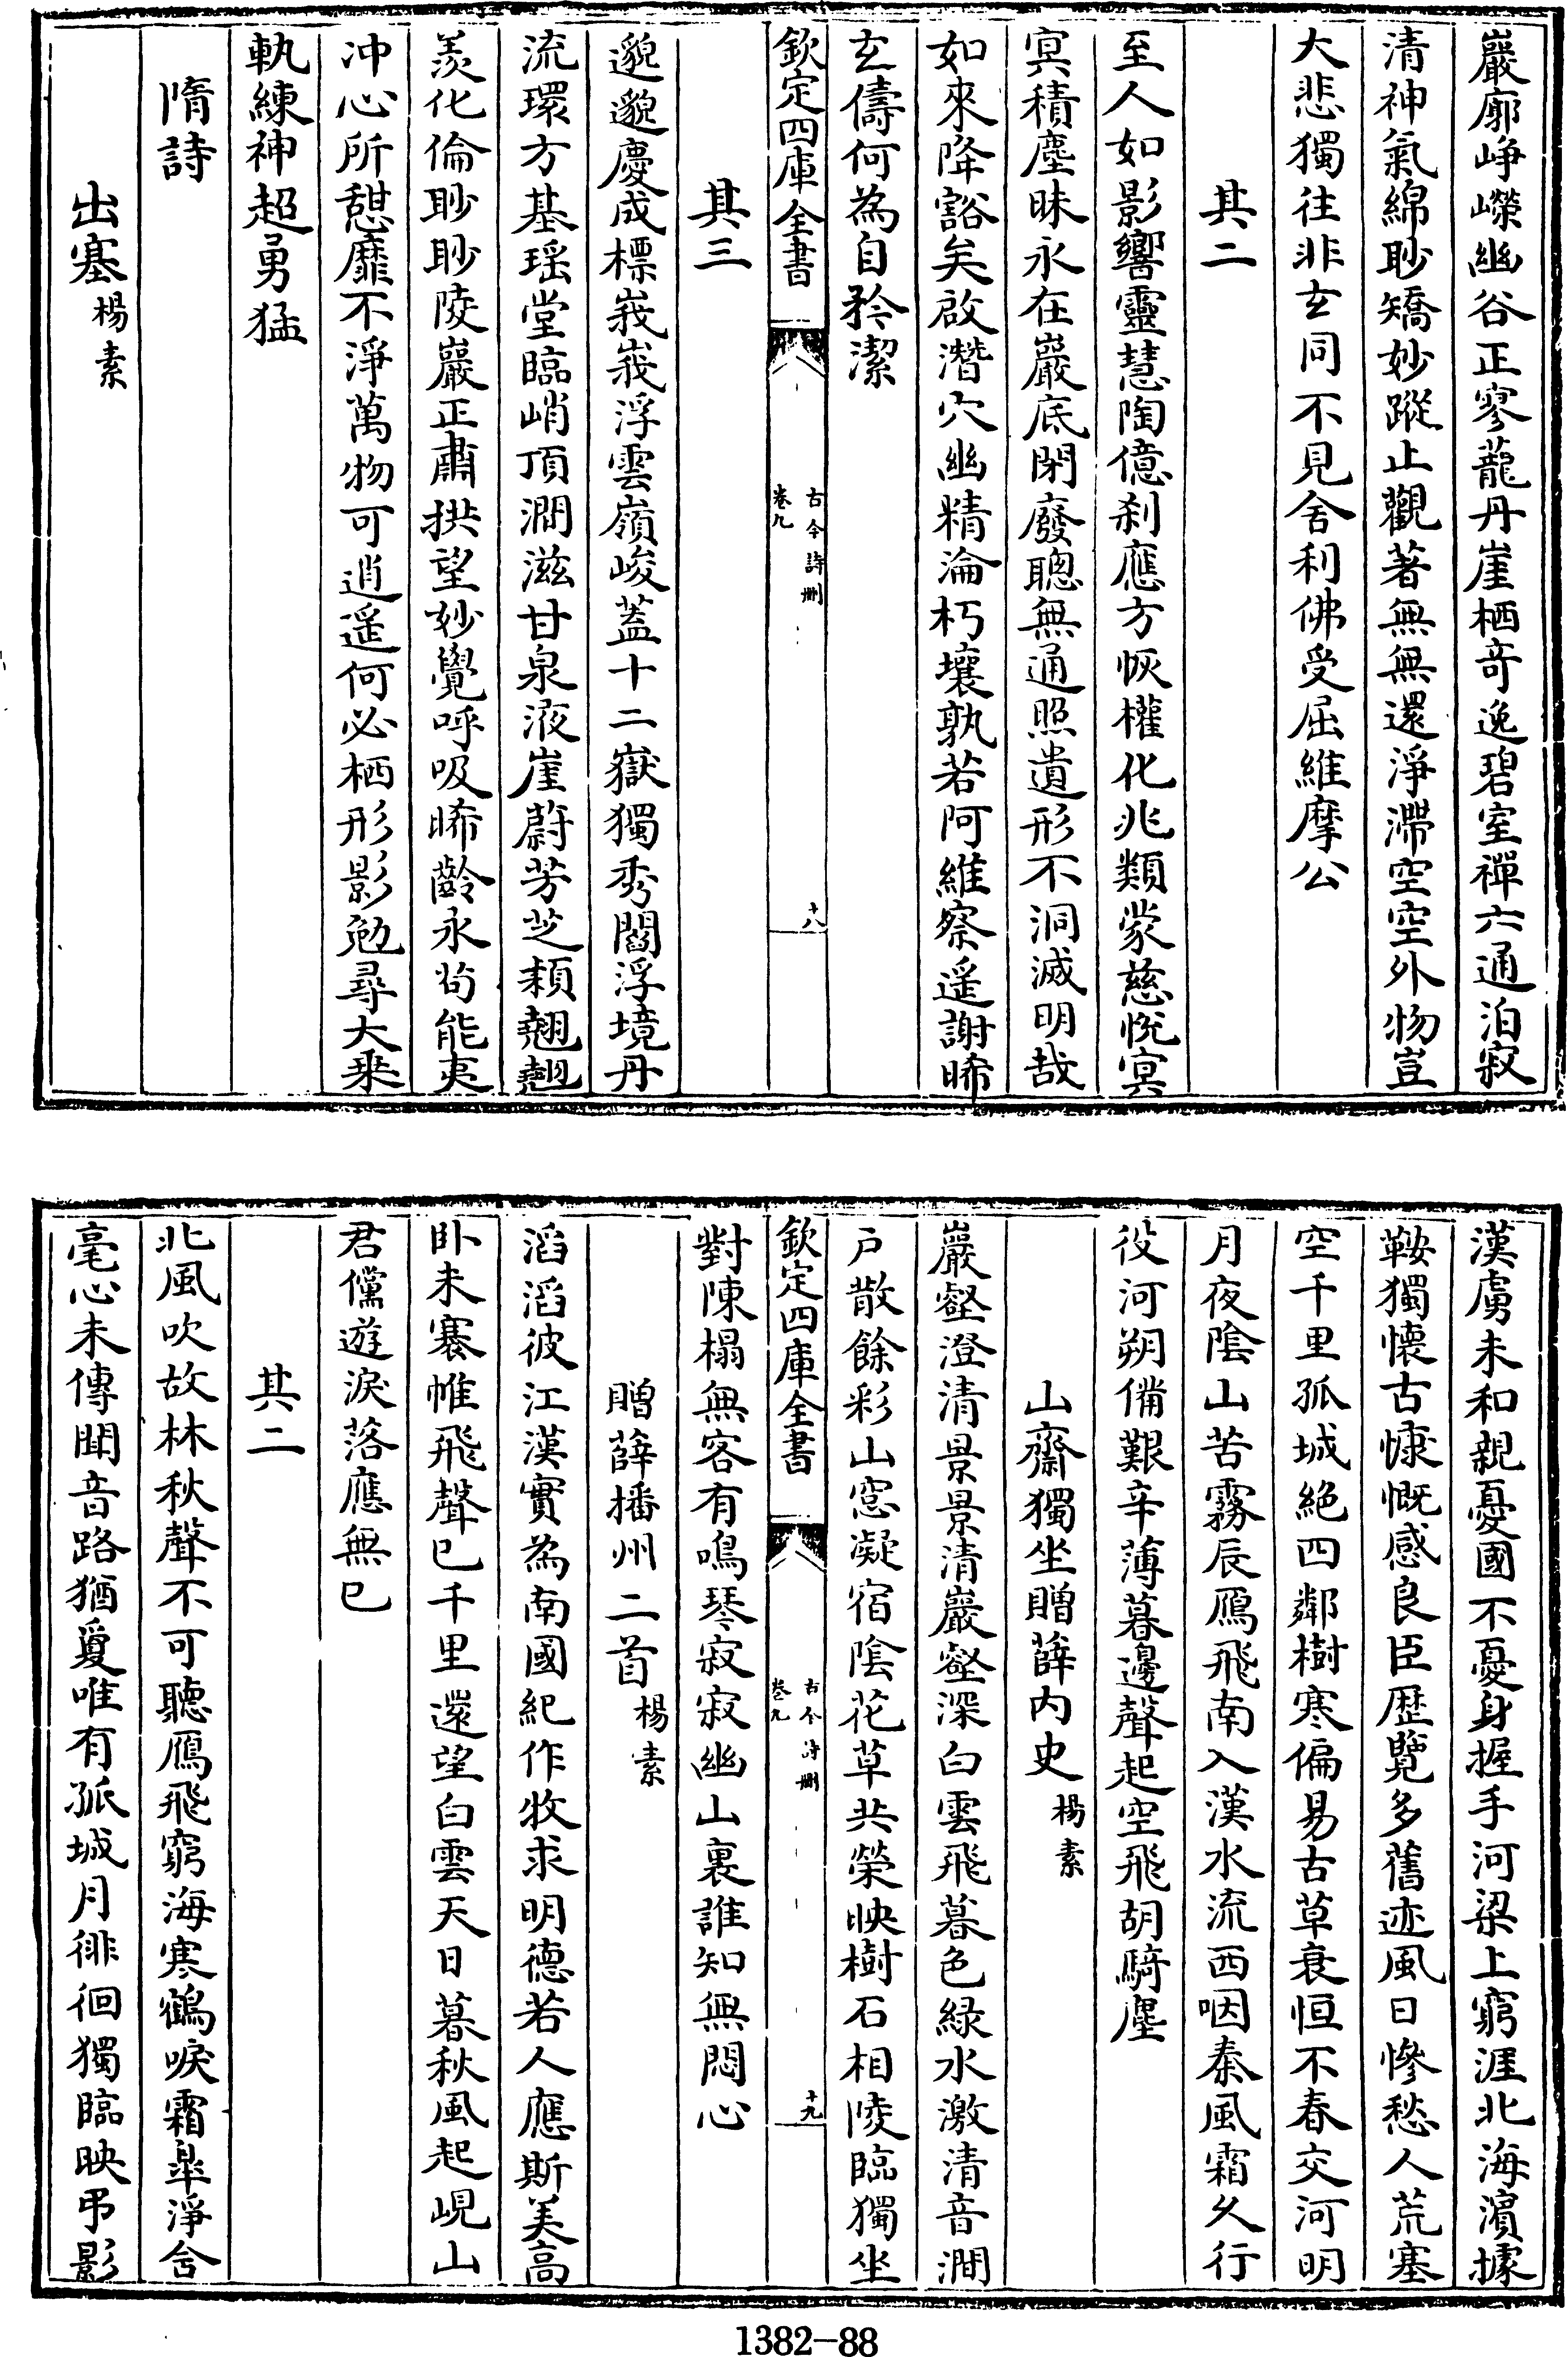 巖廓崢嶸幽谷正寥蘢丹崖栖奇逸碧室禪六通泊寂
清神氣綿眇矯妙蹤止觀著無無還淨滯空空外物豈
大悲獨往非玄同不見舍利佛受屈維摩公
其二
至人如影響靈慧陶億刹應方恢權化兆類蒙慈悅冥
冥積塵昧永在巖底閉廢聰無通照遺形不洞滅明哉
如來降豁矣啟潛穴幽精淪朽壤孰若阿維察遥謝晞
玄儔何為自矜潔
欽定四庫全書
古今詩刪
卷九
十八
其三
邈邈慶成標峩峩浮雲嶺峻蓋十二嶽獨秀閻浮境丹
流環方基瑶堂臨峭頂澗滋甘泉液崖蔚芳芝穎翹翹
羨化倫眇眇陵巖正肅拱望妙覺呼吸晞齡永苟能夷
冲心所憇靡不淨萬物可逍遥何必栖形影勉尋大乗
軌練神超勇猛
隋詩
出塞楊素
漢虜未和親憂國不憂身握手河梁上窮涯北海濵據
鞍獨懷古慷慨感良臣歴覽多舊迹風日慘愁人荒塞
空千里孤城絶四鄰樹寒偏易古草衰恒不春交河明
月夜陰山苦霧辰鴈飛南入漢水流西咽秦風霜久行
役河朔備艱辛薄暮邊聲起空飛胡騎塵
山齋獨坐贈薛内史楊素
巖壑澄清景景清巖壑深白雲飛暮色緑水激清音澗
户散餘彩山窓凝宿陰花草共榮映樹石相陵臨獨坐
對陳榻無客有鳴琴寂寂幽山裏誰知無悶心
欽定四庫全書
古今詩刪
卷九
十九
贈薛播州二首楊素
滔滔彼江漢實為南國紀作牧求明德若人應斯美高
卧未褰帷飛聲已千里還望白雲天日暮秋風起峴山
君儻遊淚落應無已
其二
北風吹故林秋聲不可聽鴈飛窮海寒鶴唳霜臯淨含
毫心未傳聞音路猶敻唯有孤城月徘徊獨臨映弔影
1382-88